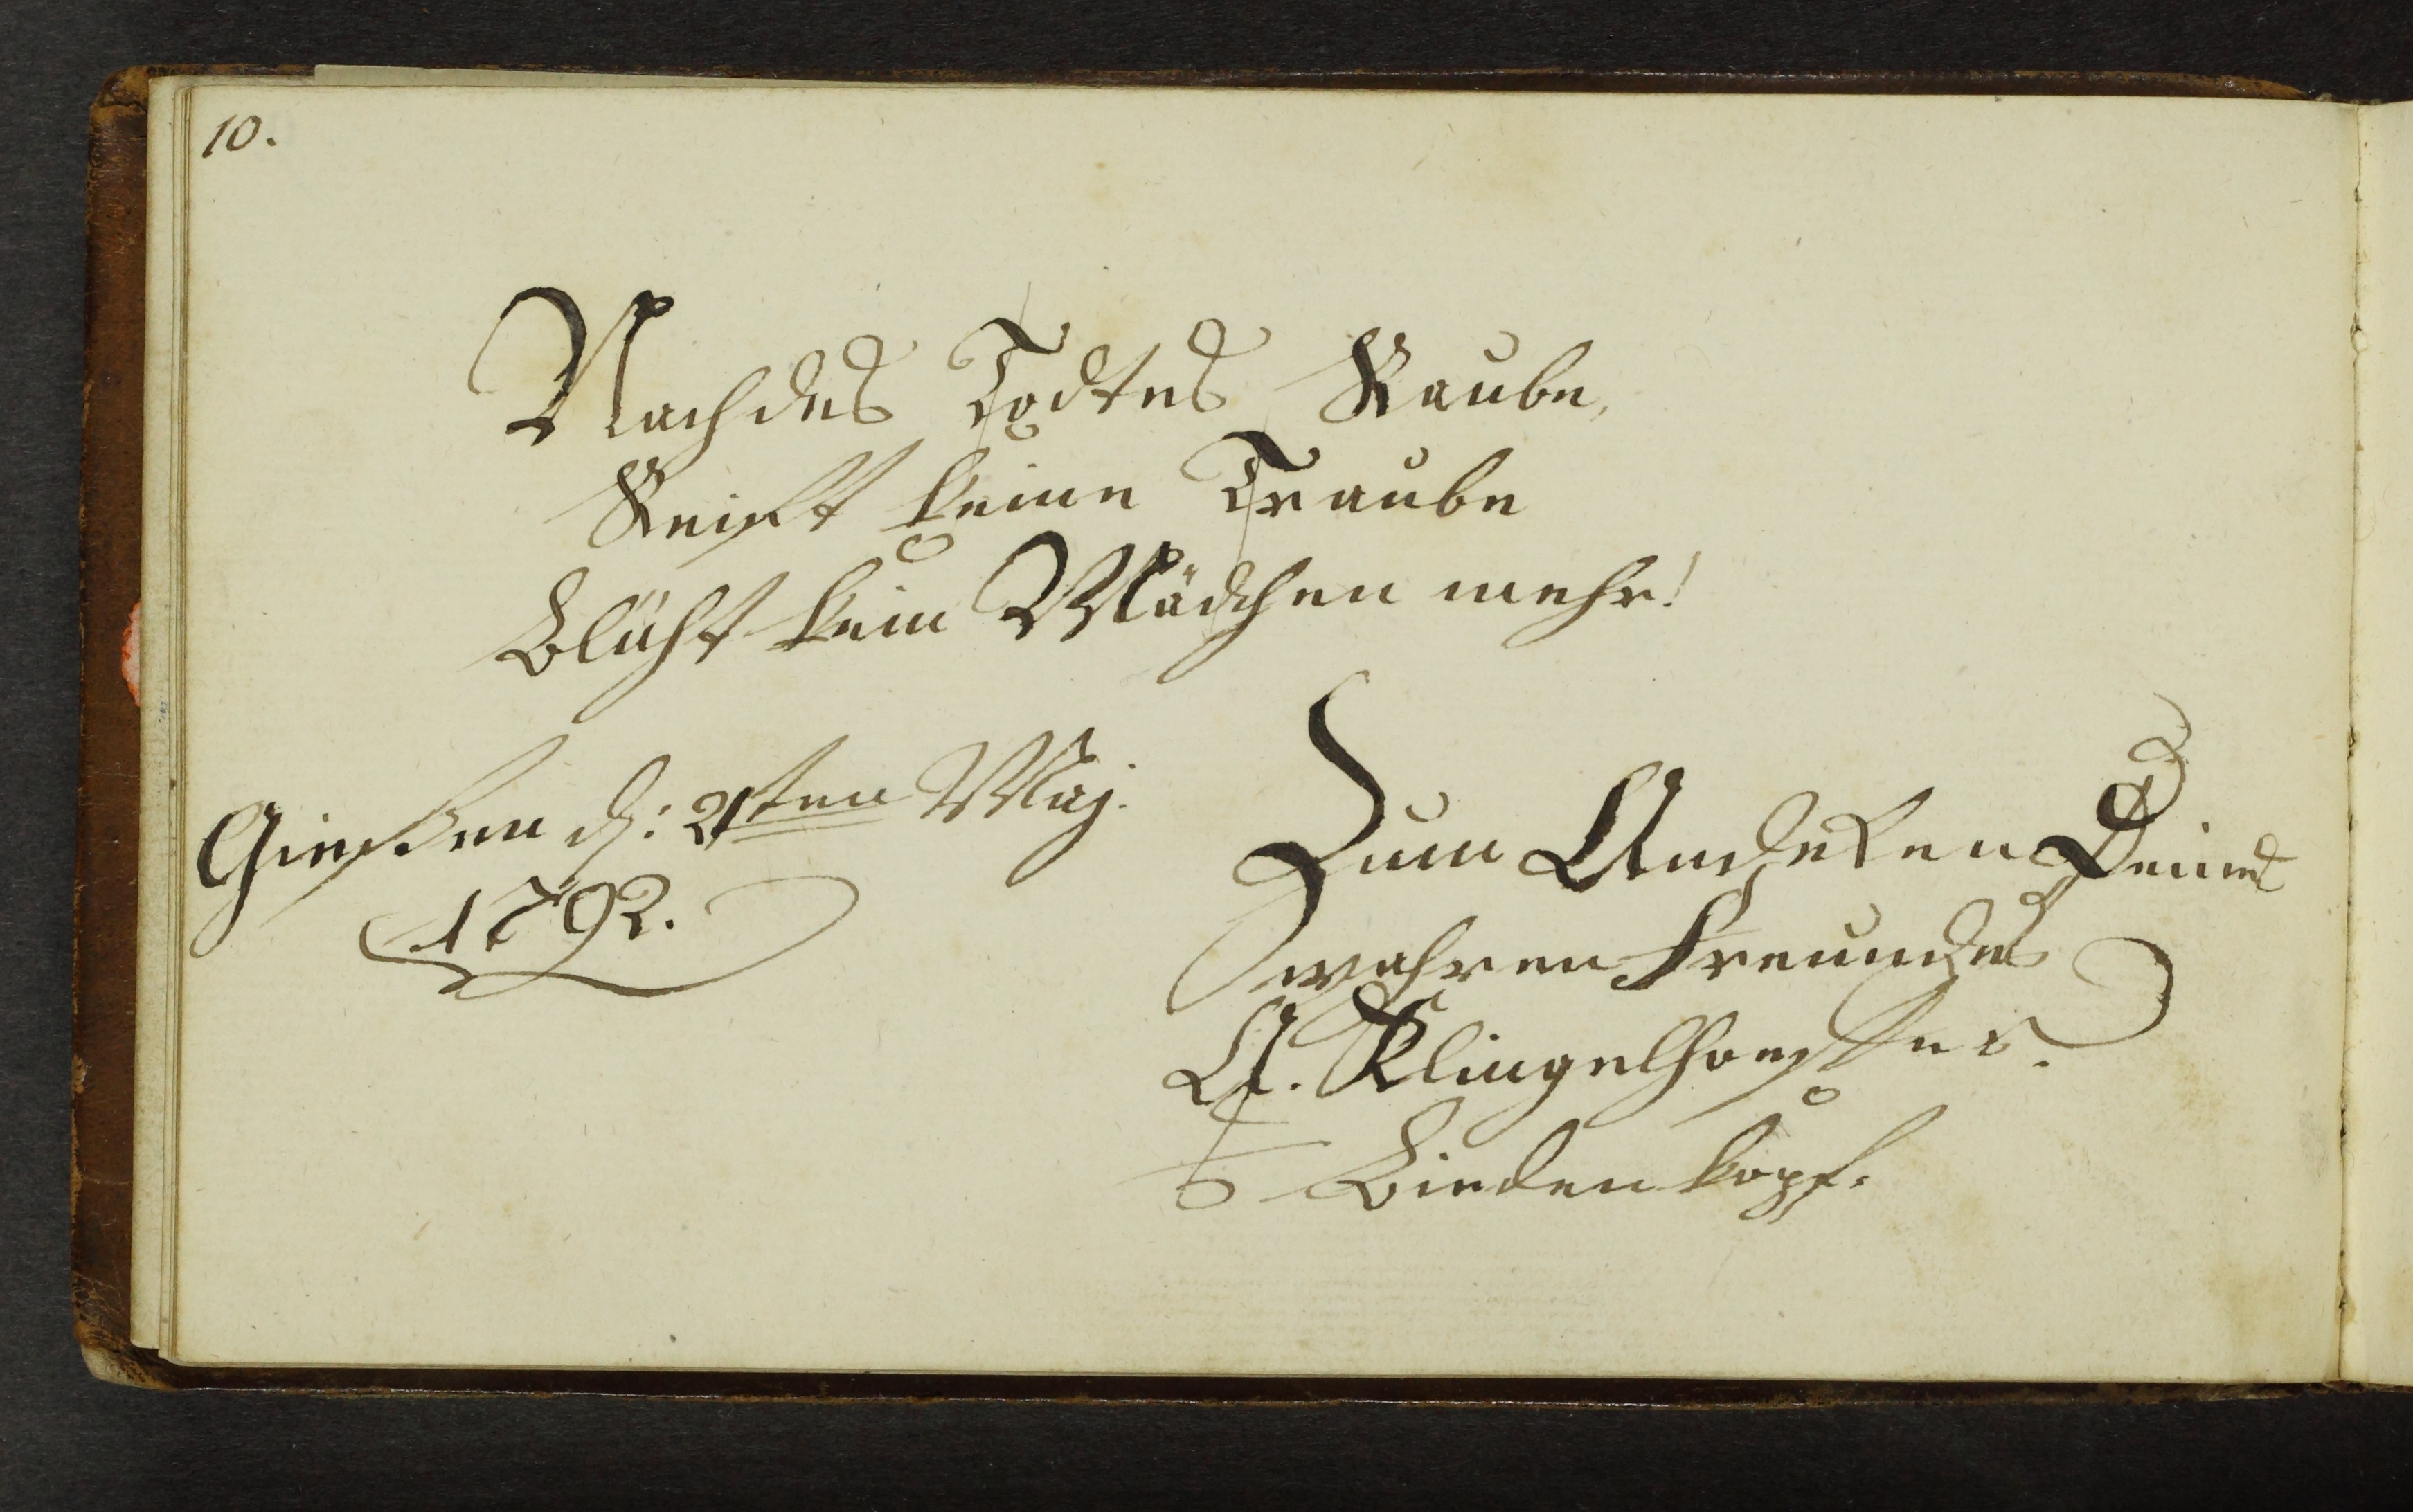 10.
Nach des Todtes Raube,
Reift keine Traube
Blüht kein Mädchen mehr!
Giessen d: 21ten Maj.
1792.
Zum Andeken Deines
wahren Freundes
A. Klingelhoeffer
Biedenkopf.